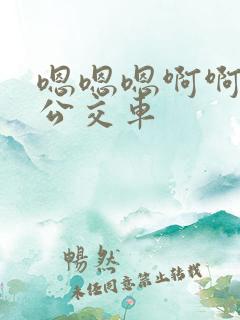 嗯嗯嗯啊啊
公交车
暢然
未经同意禁止转载